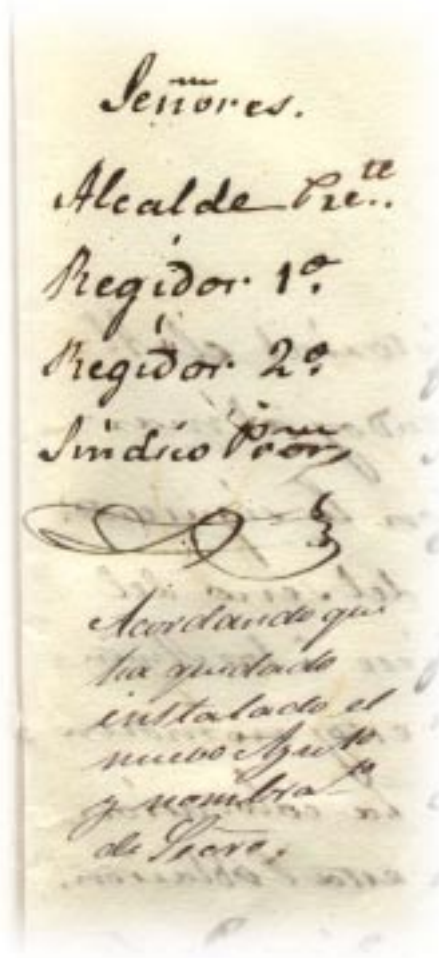 Señores.
Alcalde Pre.te
Regidor 1º
Regidor 2º
Sindico Pror
Acordando que
ha quedado
instalado el
nuevo Ayu.to
y nombra.to
de Srio.